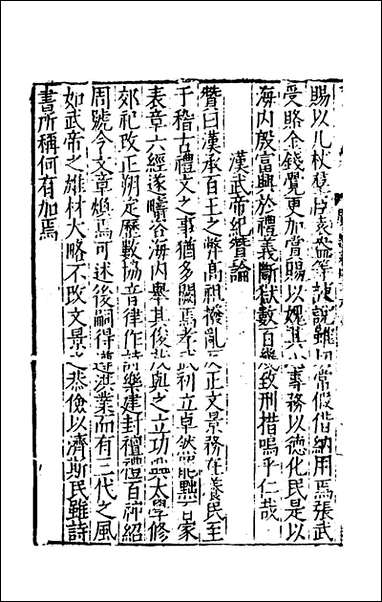 賜以几杖羣臣袁盎等諫說雖切常假借納用焉張武
受賂金錢覺更加賞賜以媿其心專務以德化民是以
海内殷富興於禮義斷獄數百幾致刑措嗚乎仁哉
漢武帝紀贊論
贊曰漢承百王之弊髙祖撥亂反正文景務在養民至
于稽古禮文之事猶多闕焉孝武初立卓然罷黜百家
表章六經遂疇咨海内舉其俊茂與之立功興太學修
郊祀改正朔定歷數協音律作詩樂建封禪禮百神紹
周號令文章煥焉可述後嗣得遵洪業而有三代之風
如武帝之雄材大略不改文景之恭儉以濟斯民雖詩
書所稱何有加焉